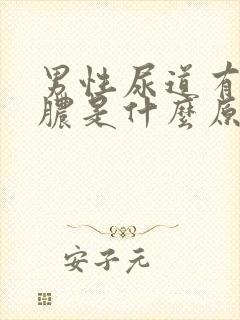 男性尿道有
膿是什麼原
安子元